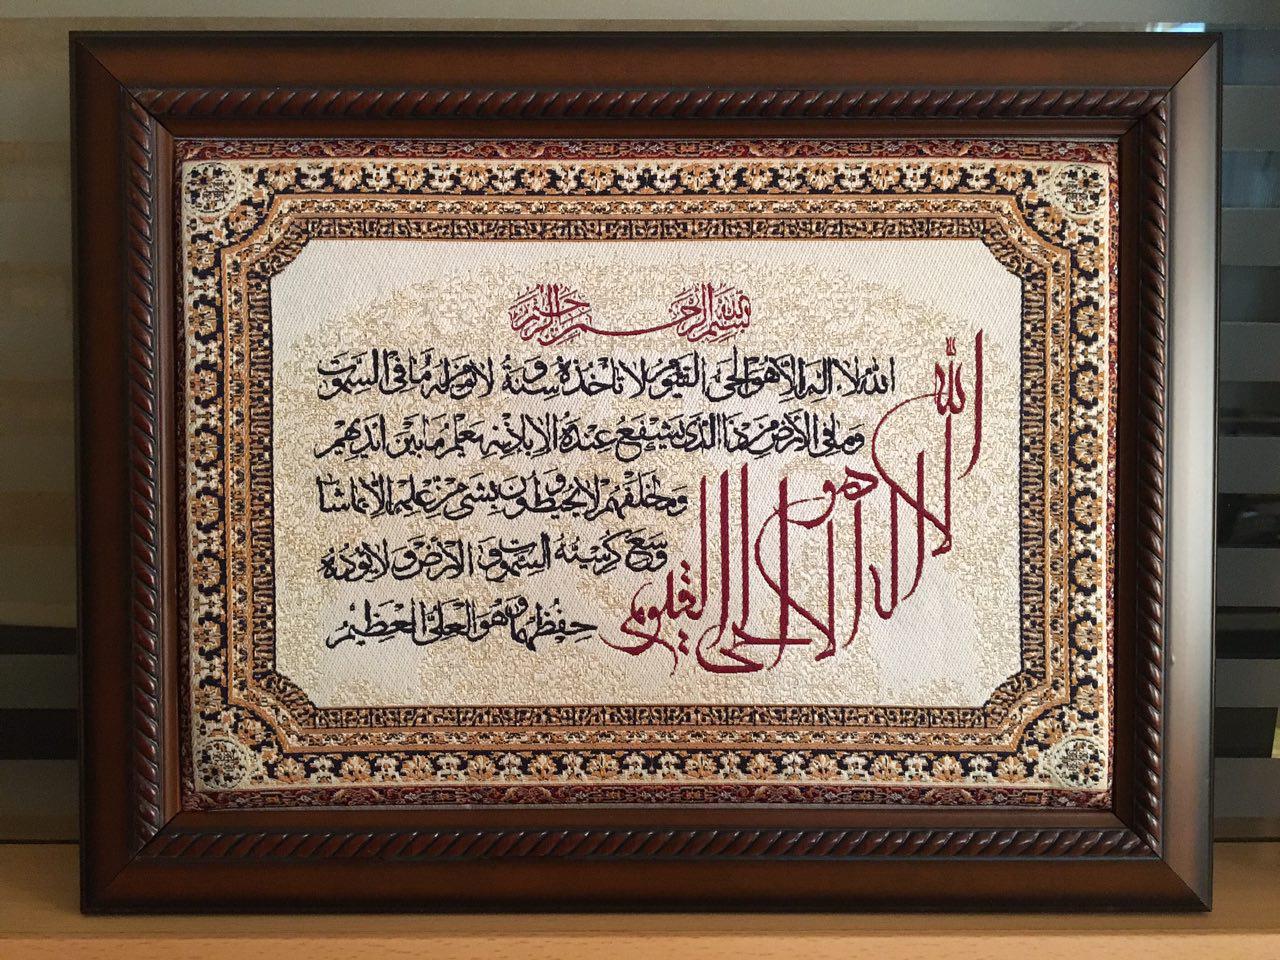 بسم الله الرحمن الرحيم
الله لا اله الا هو الحی القیوم لا تاخذه سنة و لا نوم له ما فی السموت
و ما فی الارض من ذا الذی یشفع عنده الا باذنه یعلم ما بین ایدیهم
و ما خلفهم و لا یحیطون بشیء من علمه الا بما شاء
وسع کرسیه السموت و الارض و لا یوده
حفظهما و هو العلی العظیم
الله لا اله الا هو الحی القیوم